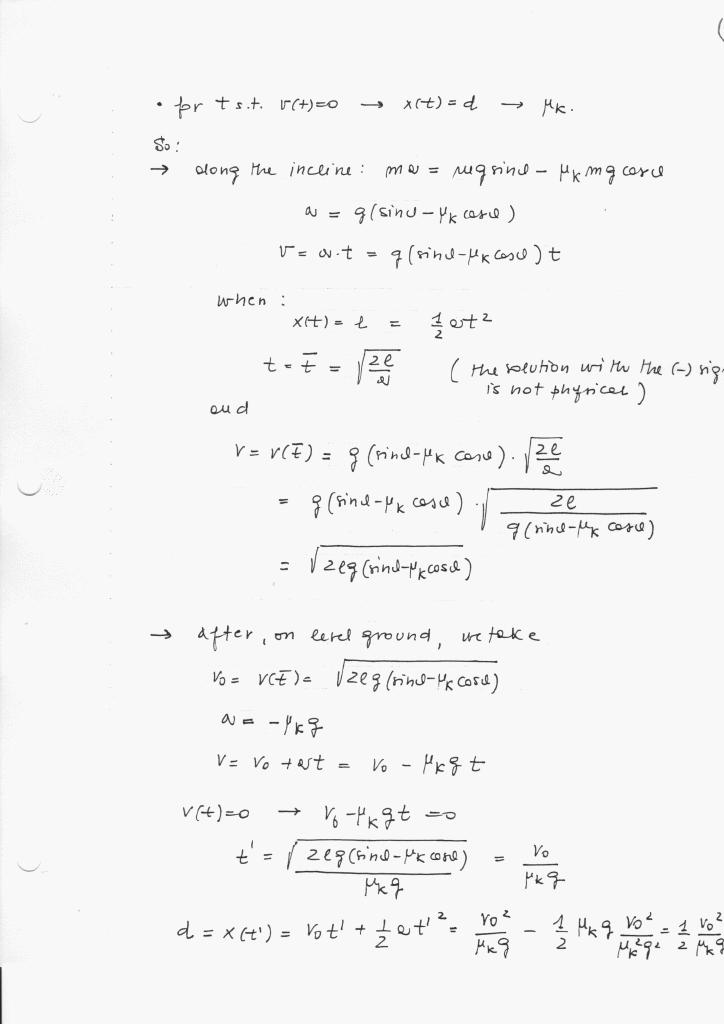 (
• for t s.t. v(t)=0 → x(t) = d → μk.
So:
→ along the incline: ma = mg sinα − μk mg cosα
a = g(sinα − μk cosα)
v = a·t = g(sinα − μk cosα)t
when:
x(t) = l = 1/2 at²
t = t̄ = √(2l/a) ( the solution with the (-) sig
is not physical )
and
v = v(t̄) = g(sinα − μk cosα)·√(2l/a)
= g(sinα − μk cosα)·√(2l/(g(sinα − μk cosα)))
= √(2lg(sinα − μk cosα))
→ after, on level ground, we take
v₀ = v(t̄) = √(2lg(sinα − μk cosα))
a = −μk g
v = v₀ + at = v₀ − μk g t
v(t)=0 → v₀ − μk g t = 0
t' = √(2lg(sinα − μk cosα))/(μk g) = v₀/(μk g)
d = x(t') = v₀t' + 1/2 at'² = v₀²/(μk g) − 1/2 μk g v₀²/(μk²g²) = 1/2 v₀²/(μk g